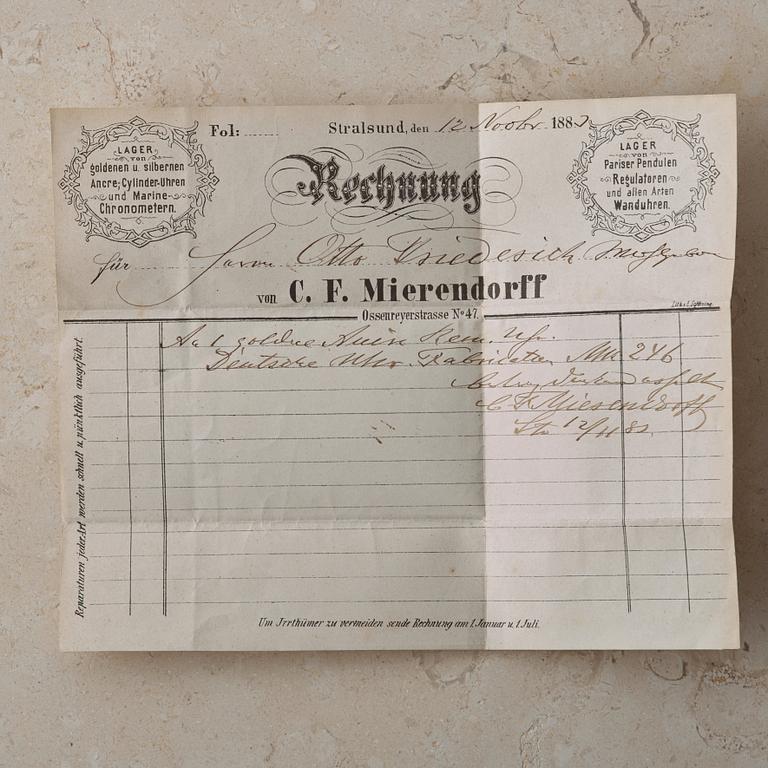 LAGER
von
goldenen u. silbernen
Ancre-, Cylinder-Uhren
und Marine-
Chronometern.
Fol:
Stralsund, den 12 Novbr. 188
LAGER
von
Pariser Pendulen
Regulatoren
und allen Arten
Wanduhren.
Rechnung
für Herrn Otto Friederich
von C. F. Mierendorff
Ossenreyerstrasse No 47.
An 1 goldne Rem. Uhr.
Deutsche Uhr Fabrication 246
C F Mierendorff
12/11 82.
Reparaturen jeder Art werden schnell u. pünktlich ausgeführt.
Um Jrrthümer zu vermeiden sende Rechnung am 1 Januar u. 1 Juli.